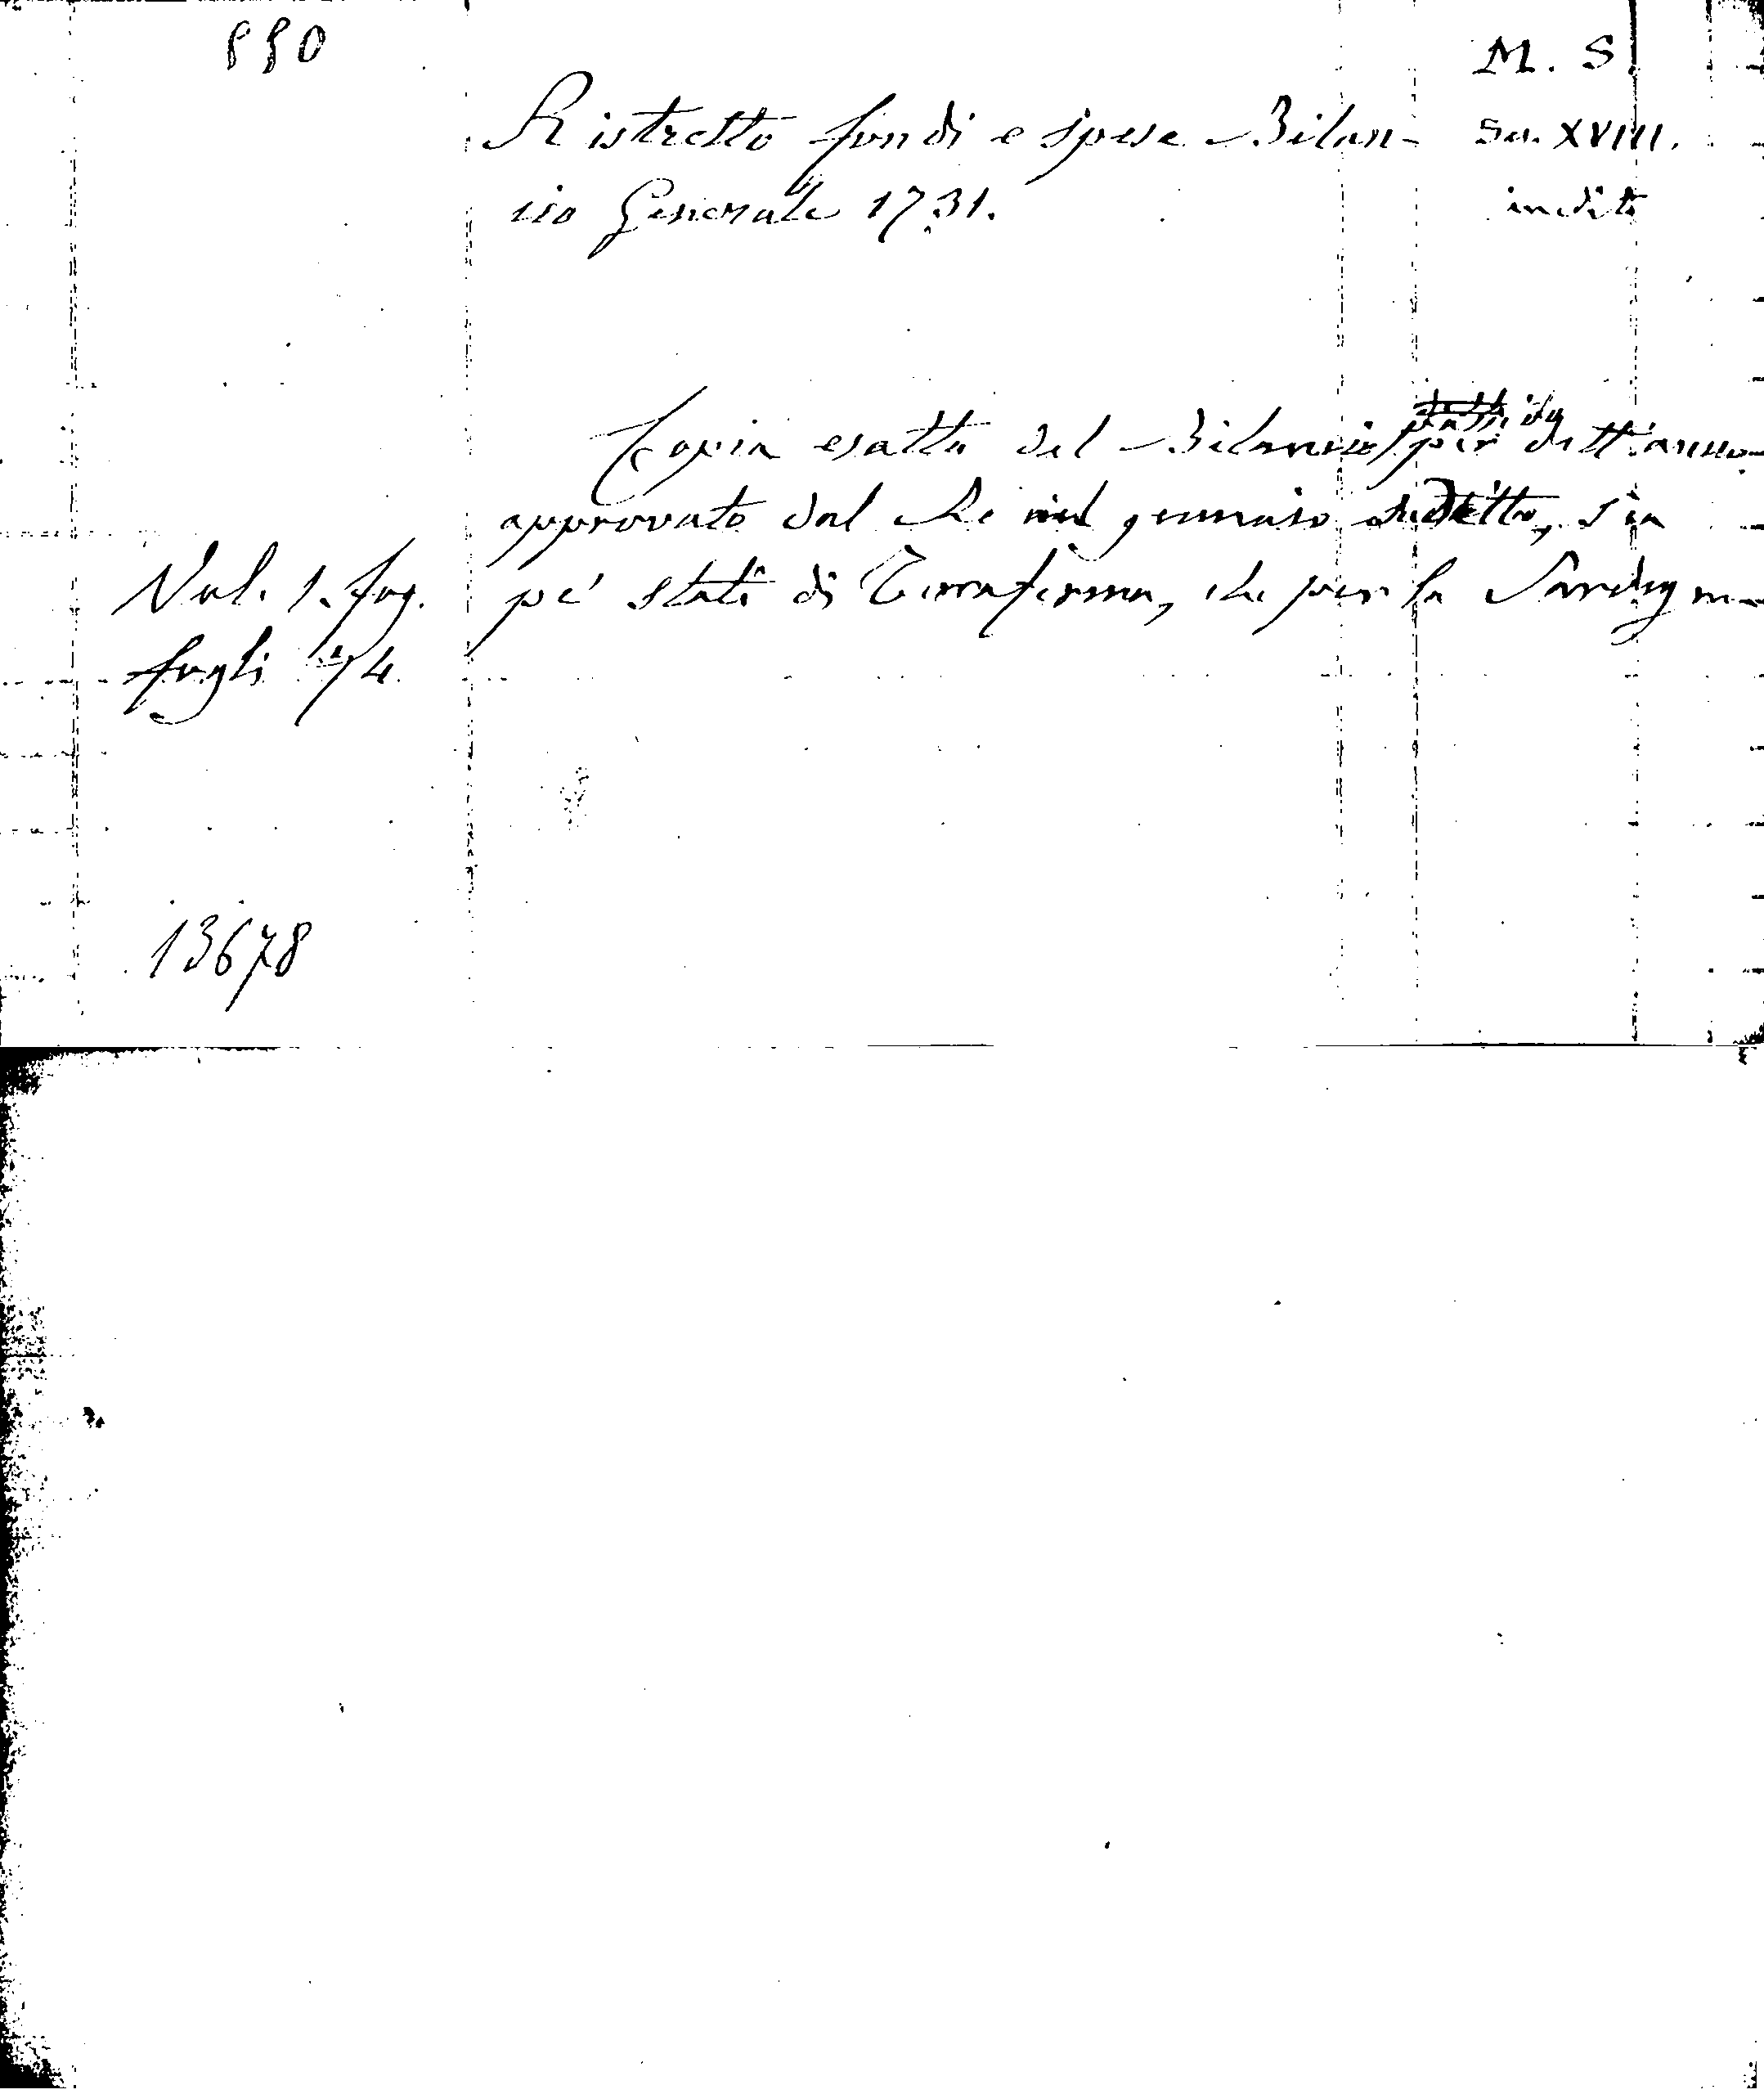 550
M. S.
Ristretto fondi e spese Bilan-
Sec. XVIII.
cio Generale 1731.
inedito
Copia esatta del Bilancio per dett'anno
approvato dal Re nel gennaio sudetto, sia
Vol. 1. fog.
pe' stati di Terraferma, che per la Sardegna
fogli 4.
13678